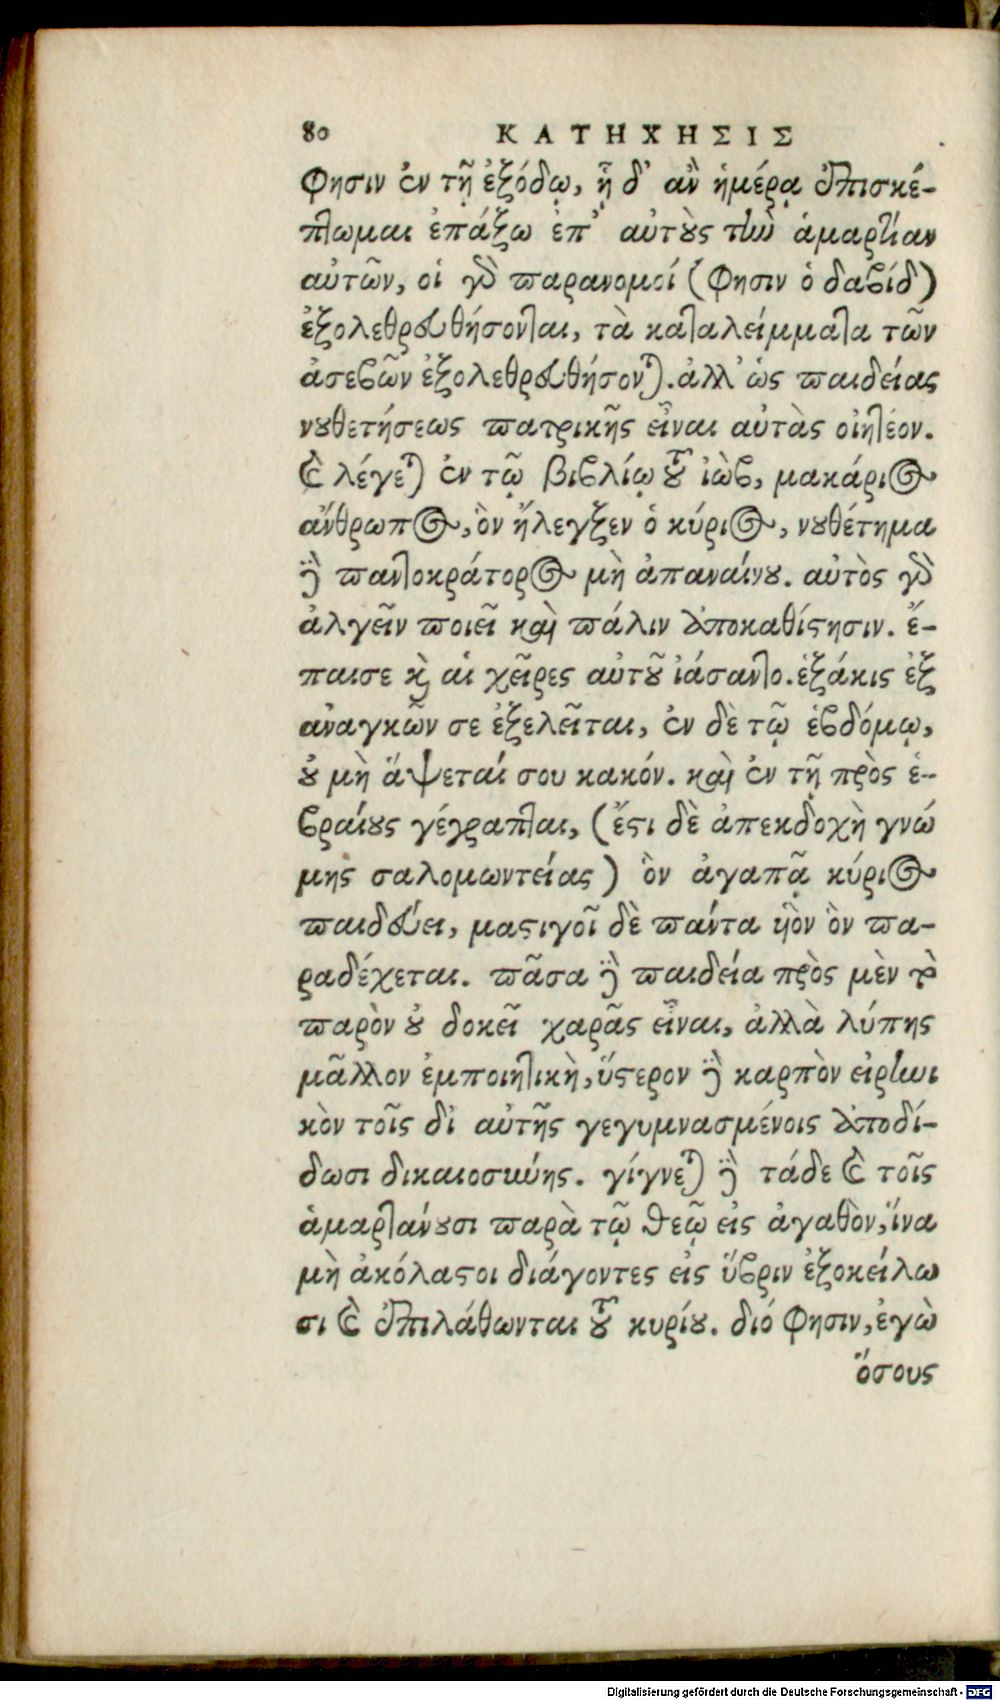 80 ΚΑΤΗΧΗΣΙΣ
φησιν ἐν τῇ ἐξόδῳ, ᾗ δ' ἂν ἡμέρᾳ ἐπισκέ-
πτωμαι ἐπάξω ἐπ' αὐτοὺς τὴν ἁμαρτίαν
αὐτῶν, οἱ γὰρ παρανομοί (φησιν ὁ δαβίδ)
ἐξολεθρευθήσονται, τὰ καταλείμματα τῶν
ἀσεβῶν ἐξολεθρευθήσονται. ἀλλ' ὡς παιδείας
νουθετήσεως πατρικῆς εἶναι αὐτὰς οἰητέον.
καὶ λέγεται ἐν τῷ βιβλίῳ τοῦ ἰὼβ, μακάριος
ἄνθρωπος, ὃν ἤλεγξεν ὁ κύριος, νουθέτημα
δὲ παντοκράτορος μὴ ἀπαναίνου. αὐτὸς γὰρ
ἀλγεῖν ποιεῖ καὶ πάλιν ἀποκαθίστησιν. ἔ-
παισε καὶ αἱ χεῖρες αὐτοῦ ἰάσαντο. ἑξάκις ἐξ
ἀναγκῶν σε ἐξελεῖται, ἐν δὲ τῷ ἑβδόμῳ,
οὐ μὴ ἅψεταί σου κακόν. καὶ ἐν τῇ πρὸς ἑ-
βραίους γέγραπται, (ἔστι δὲ ἀπεκδοχὴ γνώ
μης σαλομωντείας) ὃν ἀγαπᾷ κύριος
παιδεύει, μαστιγοῖ δὲ πάντα υἱὸν ὃν πα-
ραδέχεται. πᾶσα δὲ παιδεία πρὸς μὲν τὸ
παρὸν οὐ δοκεῖ χαρᾶς εἶναι, ἀλλὰ λύπης
μᾶλλον ἐμποιητικὴ, ὕστερον δὲ καρπὸν εἰρηνι
κὸν τοῖς δι' αὐτῆς γεγυμνασμένοις ἀποδί-
δωσι δικαιοσύνης. γίγνεται δὲ τάδε καὶ τοῖς
ἁμαρτάνουσι παρὰ τῷ θεῷ εἰς ἀγαθὸν, ἵνα
μὴ ἀκόλαστοι διάγοντες εἰς ὕβριν ἐξοκείλω
σι καὶ ἐπιλάθωνται τοῦ κυρίου. διό φησιν, ἐγὼ
ὅσους
Digitalisierung gefördert durch die Deutsche Forschungsgemeinschaft - DFG